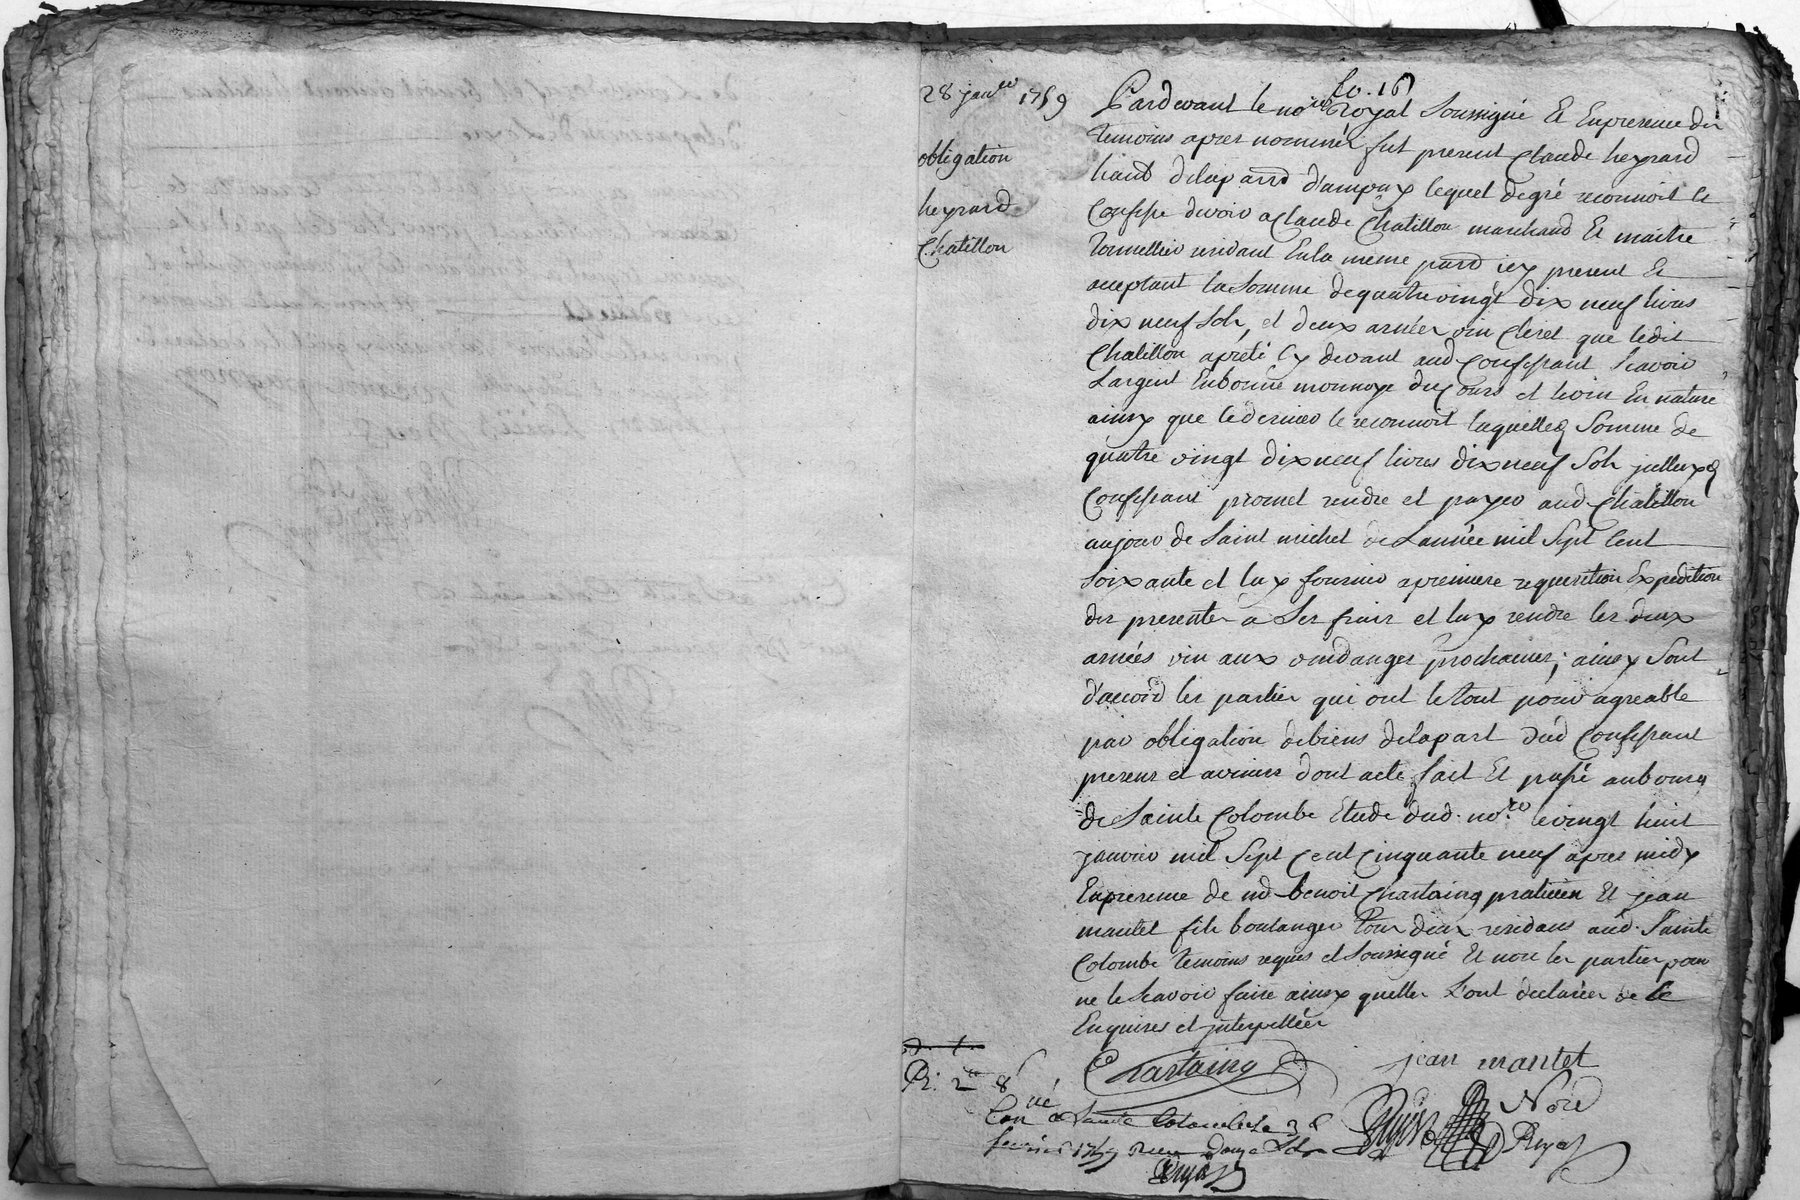 28 janer 1759
obligation
heyrard
Chatillon
fo. 16
Pardevant le nore Royal Soussigné Et Enpresence des
temoins apres nommés fut present Claude heyrard
habt delaparr d'ampuy lequel degré reconnoit et
Confesse devoir a Claude Chatillon marchand Et maitre
tonnellier residant Enla meme parr icy present Et
acceptant la Somme dequatrevingt dix neuf livres
dix neuf Sols, et deux asnées vin Cleret que ledit
Chatillon a preté Cy devant aud Confessant Scavoir
Largent Enbonne monnoye du Cours et levin En nature
ainsy que ledernier le reconnoit laquelle Somme de
quatre vingt dixneuf livres dixneuf Sols
Confessant promet rendre et payer aud Chatillon
aujour de Saint michel de Lannée mil Sept Cent
Soixante et luy fournir apremiere requisition Expedition
des presentes a Ses frais et luy rendre les deux
asnées vin aux vendanges prochaines; ainsy Sont
d'accord les parties qui ont letout pour agreable
par obligation debiens delapart dud Confessant
presens et avenirs dont acte fait Et passé aubourg
de Sainte Colombe Etude dud. nore levingt huit
janvier mil Sept Cent Cinquante neuf apres midy
Enpresence de md Benoit Chastaing praticien Et jean
mantet fils boulanger tous deux residans aud. Sainte
Colombe temoins requis et Soussigné Et non les parties pour
ne le Scavoir faire ainsy quelles L'ont declarées de ce
Enquises et interpellées
Chastaing
jean mantet
Conlé a Sainte Colombe le
fevrier 1759 Reçu Douze Sols